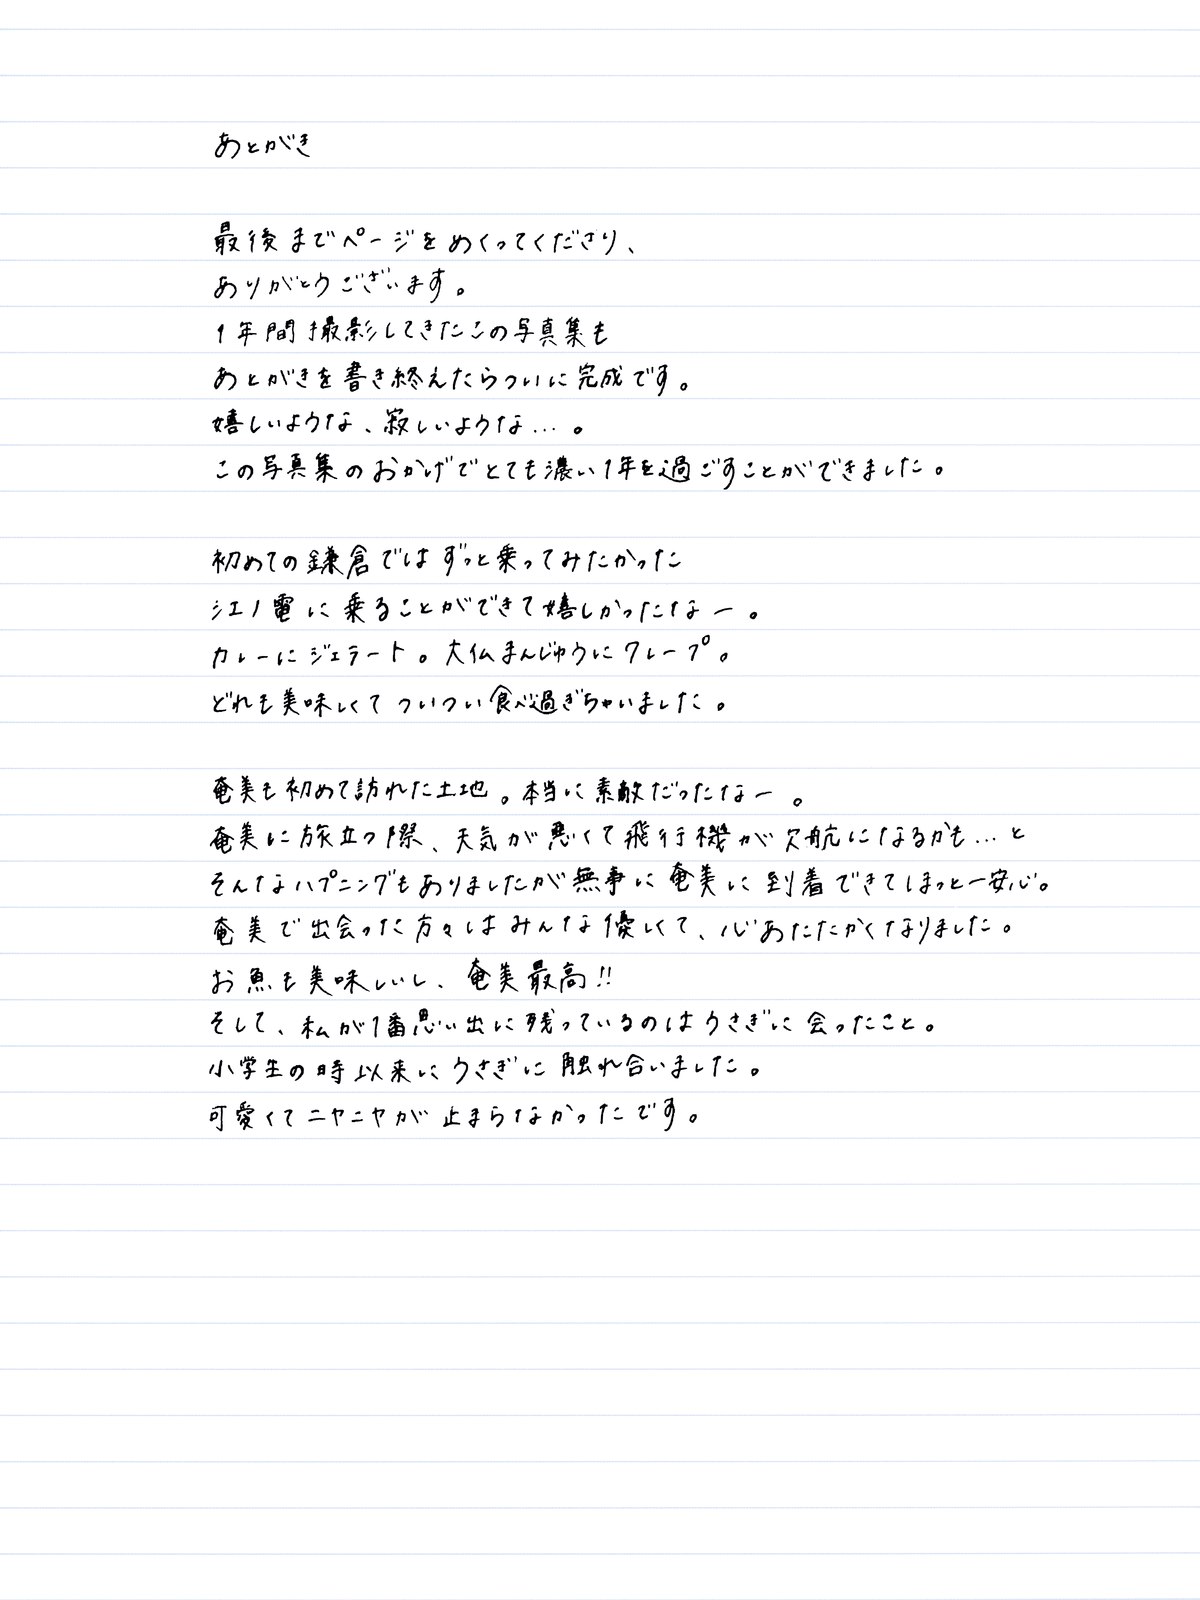 あとがき
最後までページをめくってくださり、
ありがとうございます。
1年間撮影してきたこの写真集も
あとがきを書き終えたらついに完成です。
嬉しいような、寂しいような…。
この写真集のおかげでとても濃い1年を過ごすことができました。
初めての鎌倉ではずっと乗ってみたかった
江ノ電に乗ることができて嬉しかったなー。
カレーにジェラート。大仏まんじゅうにクレープ。
どれも美味しくてついつい食べ過ぎちゃいました。
奄美も初めて訪れた土地。本当に素敵だったなー。
奄美に旅立つ際、天気が悪くて飛行機が欠航になるかも…と
そんなハプニングもありましたが無事に奄美に到着できてほっと一安心。
奄美で出会った方々はみんな優しくて、心あたたかくなりました。
お魚も美味しいし、奄美最高!!
そして、私が1番思い出に残っているのはうさぎに会ったこと。
小学生の時以来にうさぎに触れ合いました。
可愛くてニヤニヤが止まらなかったです。